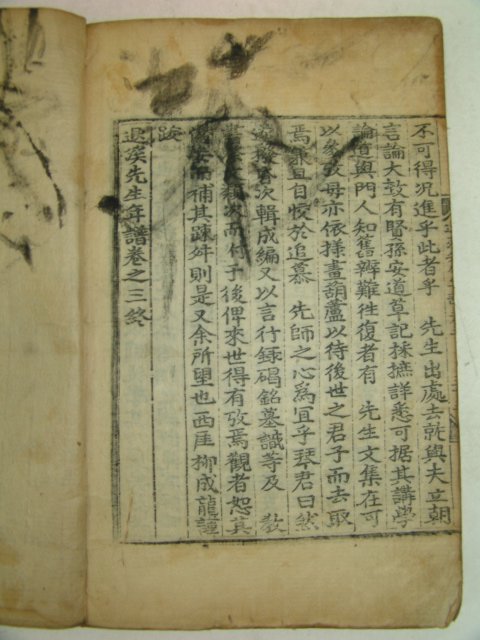 不可得況進乎此者乎 先生出處去就與夫立朝
言論大致有賢孫安道草記採摭詳悉可据其講學
論道與門人知舊辨難往復者有 先生文集在可
以 毋亦依樣畫葫蘆以待後世之君子而去取
焉 且自 於追慕 先師之心爲宜乎琴君曰然
次輯成編又以言行錄碣銘墓識等及 敎
次而付于後俾來世得有攷焉觀者恕其
而補其疎舛則是又余所望也西厓柳成龍謹
跋
退溪先生年譜卷之三終